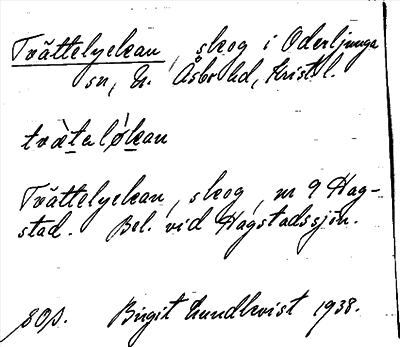 Tvättelyckan, skog i Oderljunga
sn, N. Åsbo hd, Krist. l.
tvätaløkan
Tvättelyckan, skog, nr 9 Hag-
stad. Bel. vid Hagstadssjön.
Birgit Lundkvist 1938.